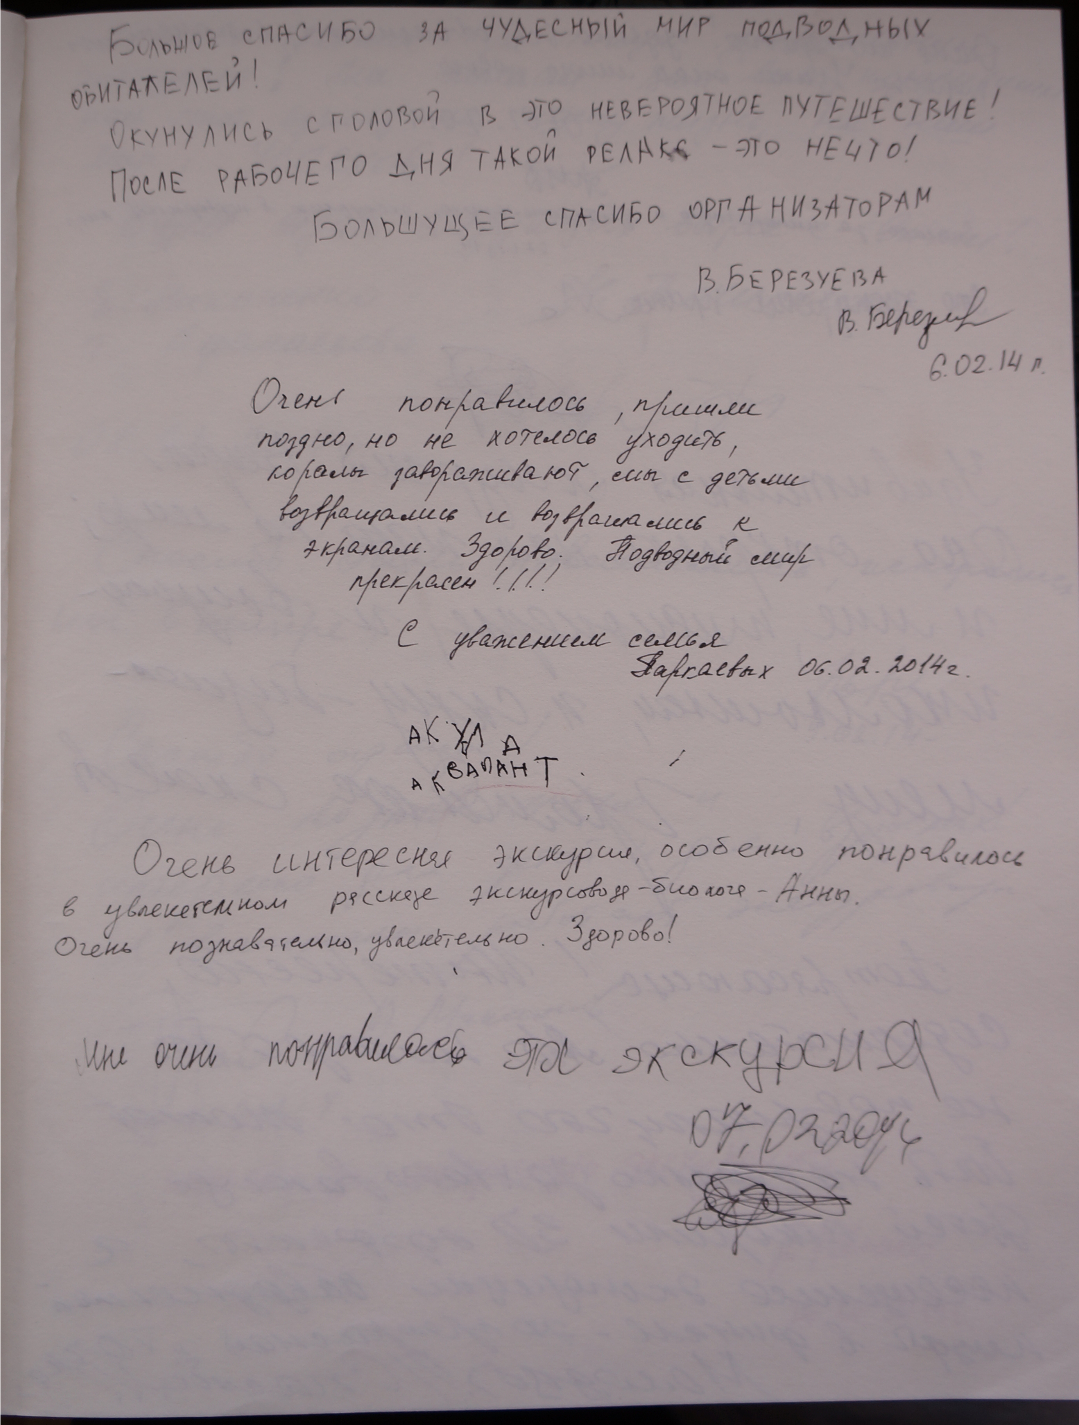 Большое спасибо за чудесный мир подводных
обитателей!
Окунулись с головой в это невероятное путешествие!
После рабочего дня такой релакс – это нечто!
Большущее спасибо организаторам
В. Березуева
В. Березуев
6.02.14 г.
Очень понравилось, пришли
поздно, но не хотелось уходить,
коралы завораживают, мы с детьми
возвращались и возвращались к
экранам. Здорово. Подводный мир
прекрасен!!!!
С уважением семья
Паркаевых 06.02.2014г.
АКУЛА
АКВАЛАНТ
Очень интересная экскурсия, особенно понравилось
в увлекательном рассказе экскурсовода-биолога - Анны.
Очень познавательно, увлекательно. Здорово!
Мне очень понравилось эта экскурсия
07.02.2014